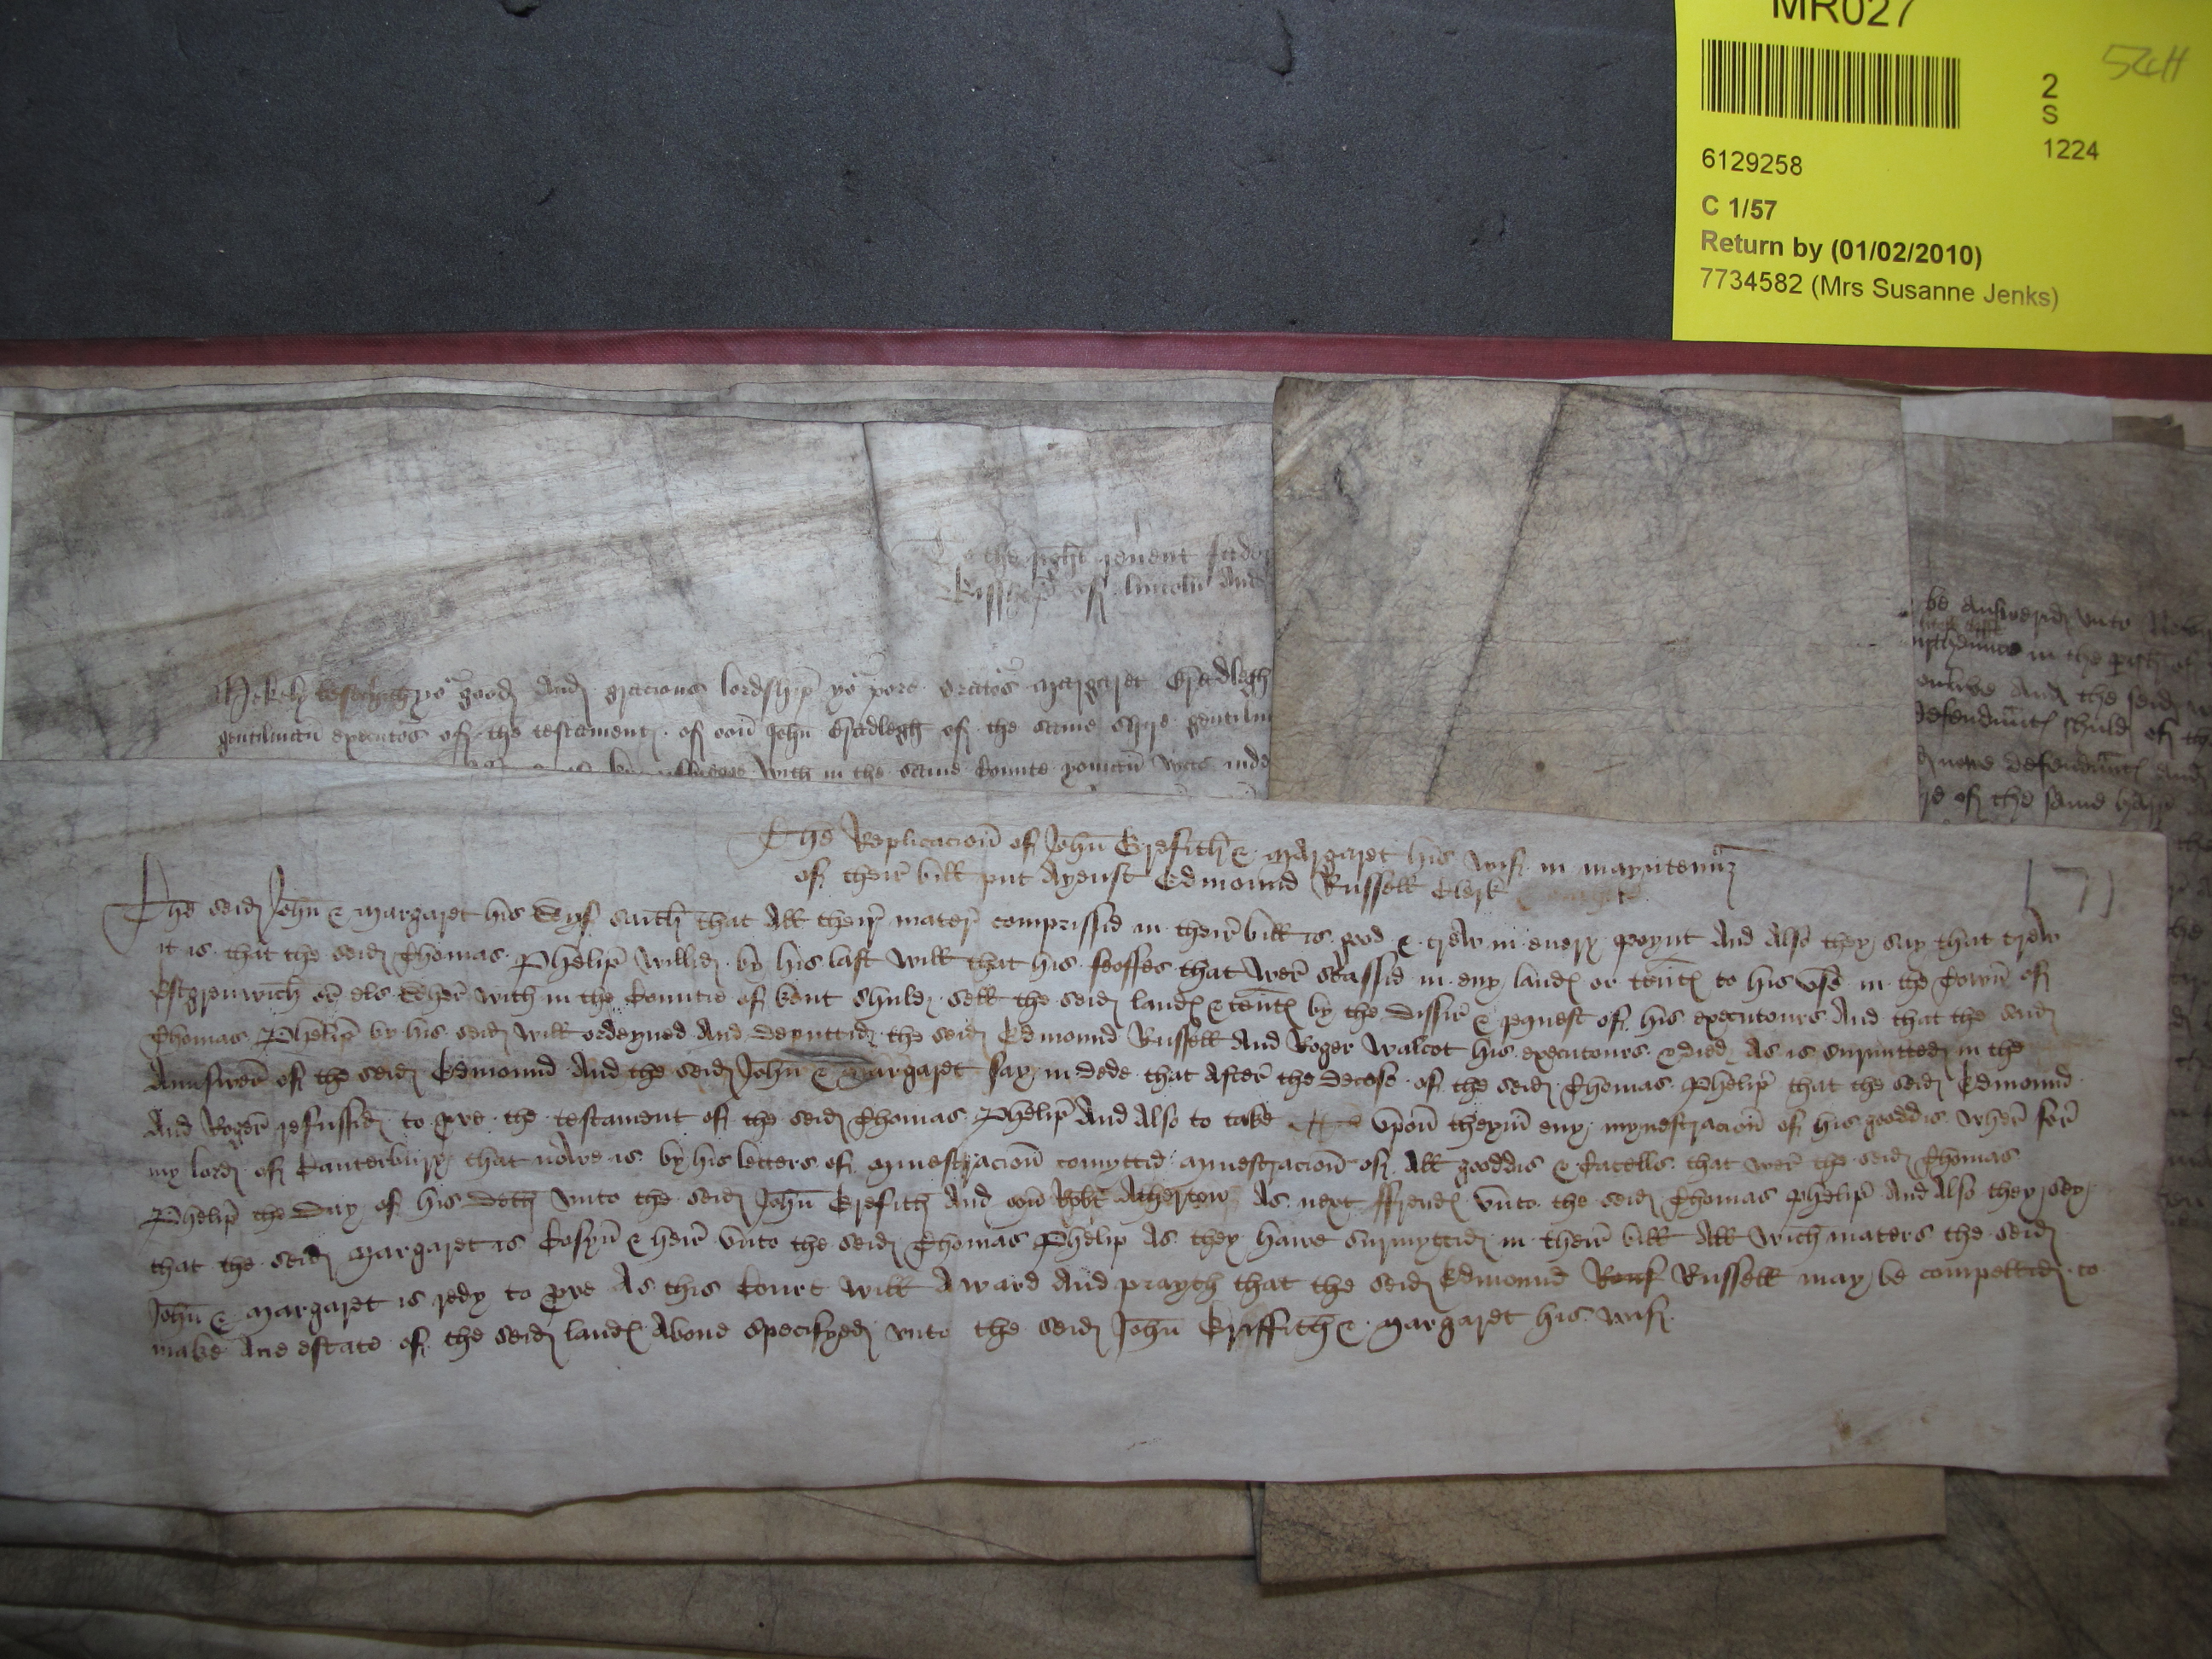 MR027
5ZH
2
S
1224
6129258
C 1/57
Return by (01/02/2010)
7734582 (Mrs Susanne Jenks)
To the right reuent fader
Bisshop of lincoln And
Mekely besechith yor good And gracious lordship yor pore orators Margaret Hadlegh
gentilman executors of the testament of oon John Hadlegh of the same shire gentilm
with in the same Counte yoman was inde
be Answerid vnto
in the
And the seid
defendauntes shuld of th
none defendaunt And
of the same
The Replicacion of John Grefith & Margaret his wif in mayntennz
of their bill put Ayenst Edmound Russell Clerk
171
The seid John & Margaret his Wyf saith that All their mater comprissid in their bill is good & trew in euery poynt And Also they say that trew
it is that the seid Thomas Phelip Willid by his last will that his feoffes that wer seassid in eny landes or tentes to his vse in the Town of
Estgrenwich or els wher with in the Countie of kent shuld sell the seid landes & tentes by the dissir & request of his executours And that the seid
Thomas Phelip by his seid will ordeyned And deputtid the seid Edmound Russell And Roger Walcot his executours & died As is surmitted in the
Annswer of the seid Edmound And the seid John & Margaret say in dede that After the decese of the seid Thomas Phelip that the seid Edmound
And Roger refussid to pve the testament of the seid Thomas Phelip And Also to take vpon theym eny mynestracion of his gooddis wher for
my lord of Canterbury that nowe is by his letters of mynestracion comyttid mynestracion of All gooddis & Catells that wer the seid Thomas
Phelip the day of his deth vnto the seid John Grefith And oon Robt Atherton As next ffrendes vnto the seid Thomas Phelip And Also they sey
that the seid Margaret is Cosyn & heir vnto the seid Thomas Phelip As they haue surmyttid in their bill All Wich maters the seid
John & Margaret is redy to pve As this Court will Award And prayth that the seid Edmound Russell may be compellid to
make Ane estate of the seid landes Aboue specifyed vnto the seid John Griffith & Margaret his wif